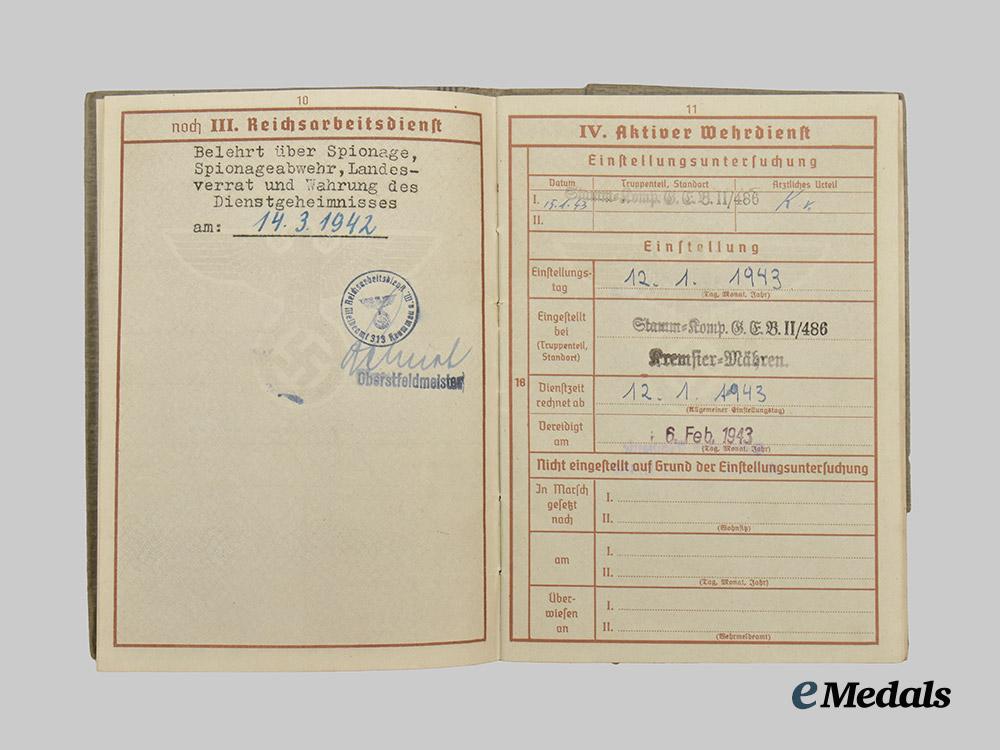 10
noch III. Reichsarbeitsdienst
Belehrt über Spionage,
Spionageabwehr, Landes-
verrat und Wahrung des
Dienstgeheimnisses
am: 14.3.1942
Reichsarbeitsdienst
Meldeamt 313
Oberstfeldmeister
11
IV. Aktiver Wehrdienst
Einstellungsuntersuchung
Datum Truppenteil, Standort Ärztliches Urteil
I. Stamm=Komp. G. E. B. II/486 K.v.
II.
Einstellung
Einstellungs-
tag
12. 1. 1943
(Tag, Monat, Jahr)
Eingestellt
bei
(Truppenteil,
Standort)
Stamm=Komp. G. E. B. II/486
Kremsier=Mähren.
16
Dienstzeit
rechnet ab
12. 1. 1943
(Allgemeiner Einstellungstag)
Vereidigt
am
6. Feb. 1943
(Tag, Monat, Jahr)
Nicht eingestellt auf Grund der Einstellungsuntersuchung
In Marsch
gesetzt
nach
I.
II.
(Wohnsitz)
am
I.
II.
(Tag, Monat, Jahr)
Über-
wiesen
an
I.
II.
(Wehrmeldeamt)
eMedals